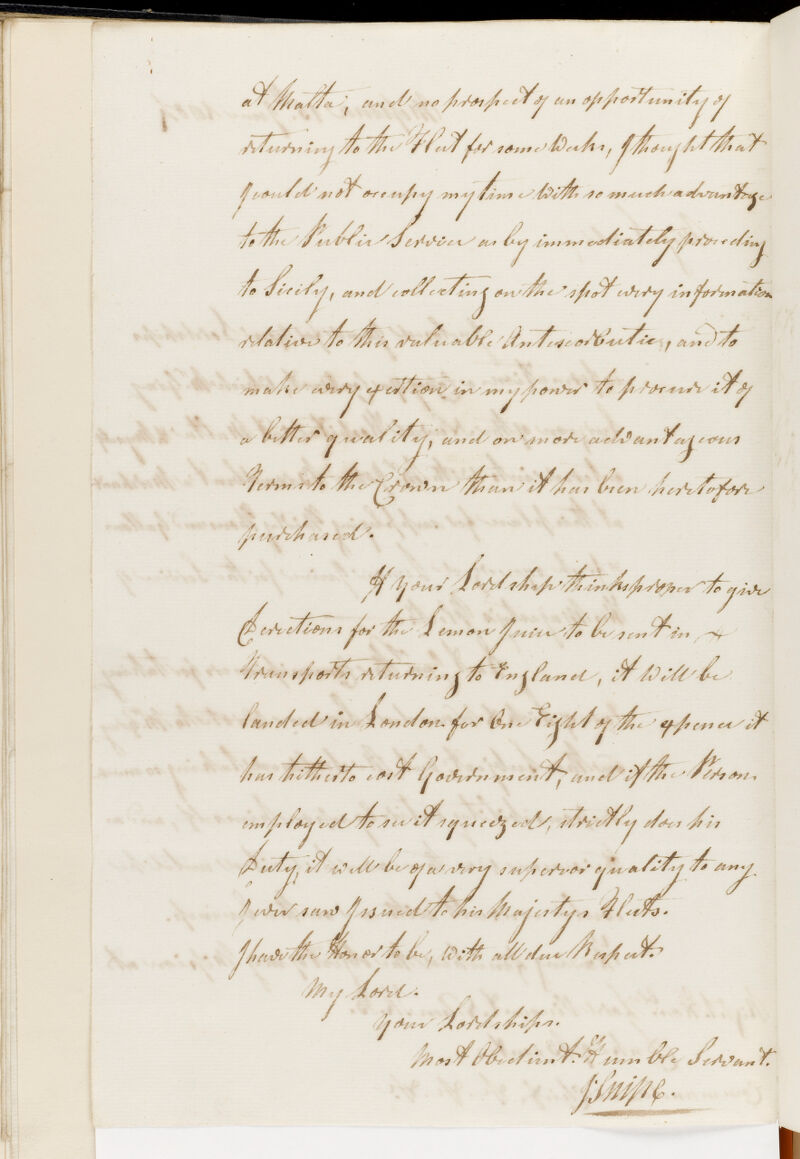 at Malta; and no prospect of an opportunity of
returning to the Fleet for some Weeks, I thought that
I could not occupy my time With so much advantage
to the Public Service as by immediately proceding
to Sicily, and collecting on the spot every information
relative to this valuable Antiscorbutic, and to
make every exertion in my power to procure it of
a better quality, and on more advantageous
Terms to the Crown than it has been heretofore
purchased.
If Your Lordship thinks proper to give
Directions for the Lemon Juice to be sent in
Transports returning to England, it Will be
landed in London for One Eight of the expence it
has hitherto cost Government, and if the Person
employed to see it squeezed, strictly does his
Duty, it will be of a very superior quality to any
I ever saw Issued to his Majestys Fleets.
I have the Honor to be, With all due Respect.
My Lord.
Your Lordships.
Most Obedient Humble Servant.
J Snipe.